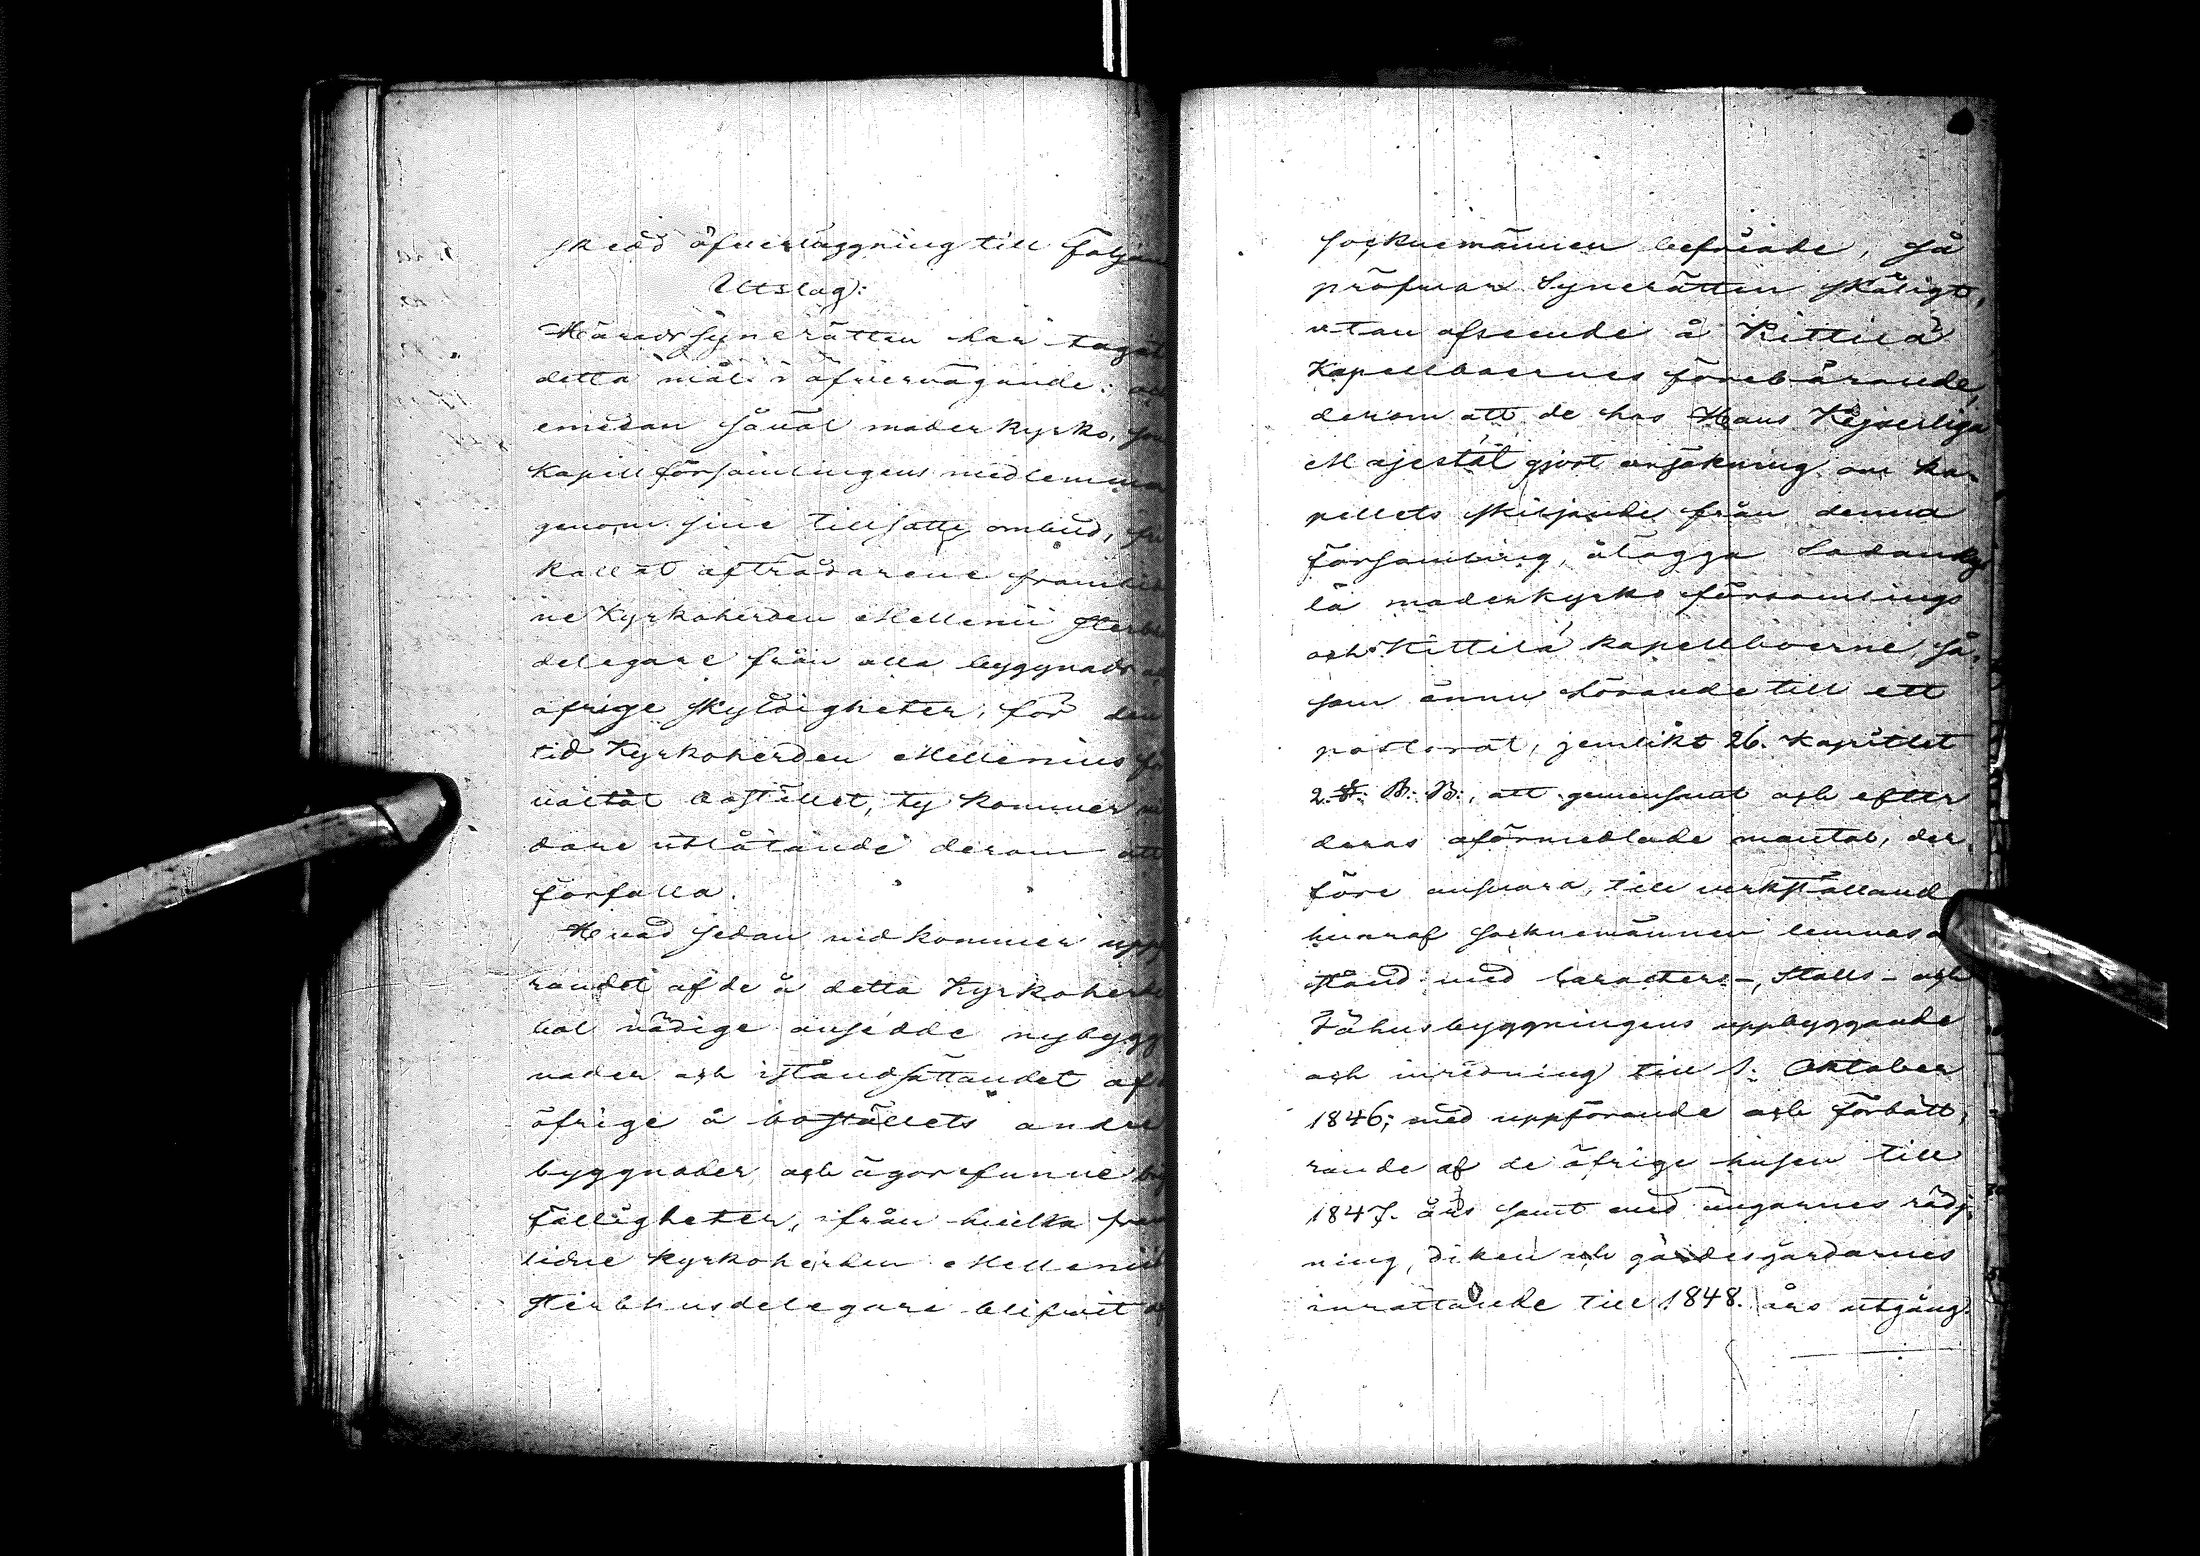 skedd öfverläggning till följan
Utslag:
Häradssynerätten har tagit
detta mål i öfvervägande: och
emedan såväl moderkyrko, som
Kapellförsamlingens medlemma
genom sine tillsatte ombud, fri
kallat afträdarene framlid
ne Kyrkoherden Mellenii sterbhus
delegare från alla byggnads och
öfrige skyldigheter, för den
tid Kyrkoherden Mellenius
bostället, ty kommer
dare utlåtande derom att
förfalla.
Hvad sedan vidkommer uppf
randet af de å detta Kyrkoherde
bol nödige ansedde nybygg
nader och iståndsättandet af
öfrige å boställets andre
byggnader och ägor funne
fälligheter, ifrån hvilka fram
lidne Kyrkoherden Mellenii
sterbhusdelegare blifvit af
socknemännen befriade, så
pröfvar Synerätten skäligt,
utan afseende å Kittilä
Kapellboernes förebärande,
derom att de hos Hans Kejserliga
Majestät gjort ansökning om ka-
pellets skiljande från denna
församling, ålägga Sodanky
lä moderkyrko församlings
och Kittilä kapellboerne så,
som ännu hörande till ett
pastorat, jemlikt 26. Kapitlet
2. §. B. B., att gemensamt och efter
deras oförmedlade mantal, der,
före ansvara, till verkställand
hvaraf socknemännen lemnas
stånd med karacters-, Stalls- och
Fähusbyggningens uppbyggande
och inredning till 1. Oktober
1846; med uppförande och förbätt,
rande af de öfrige husen till
1847. års samt med ängarnes rödj,
ning, diken och gärdesgårdarnes
inrättande till 1848. års utgång.